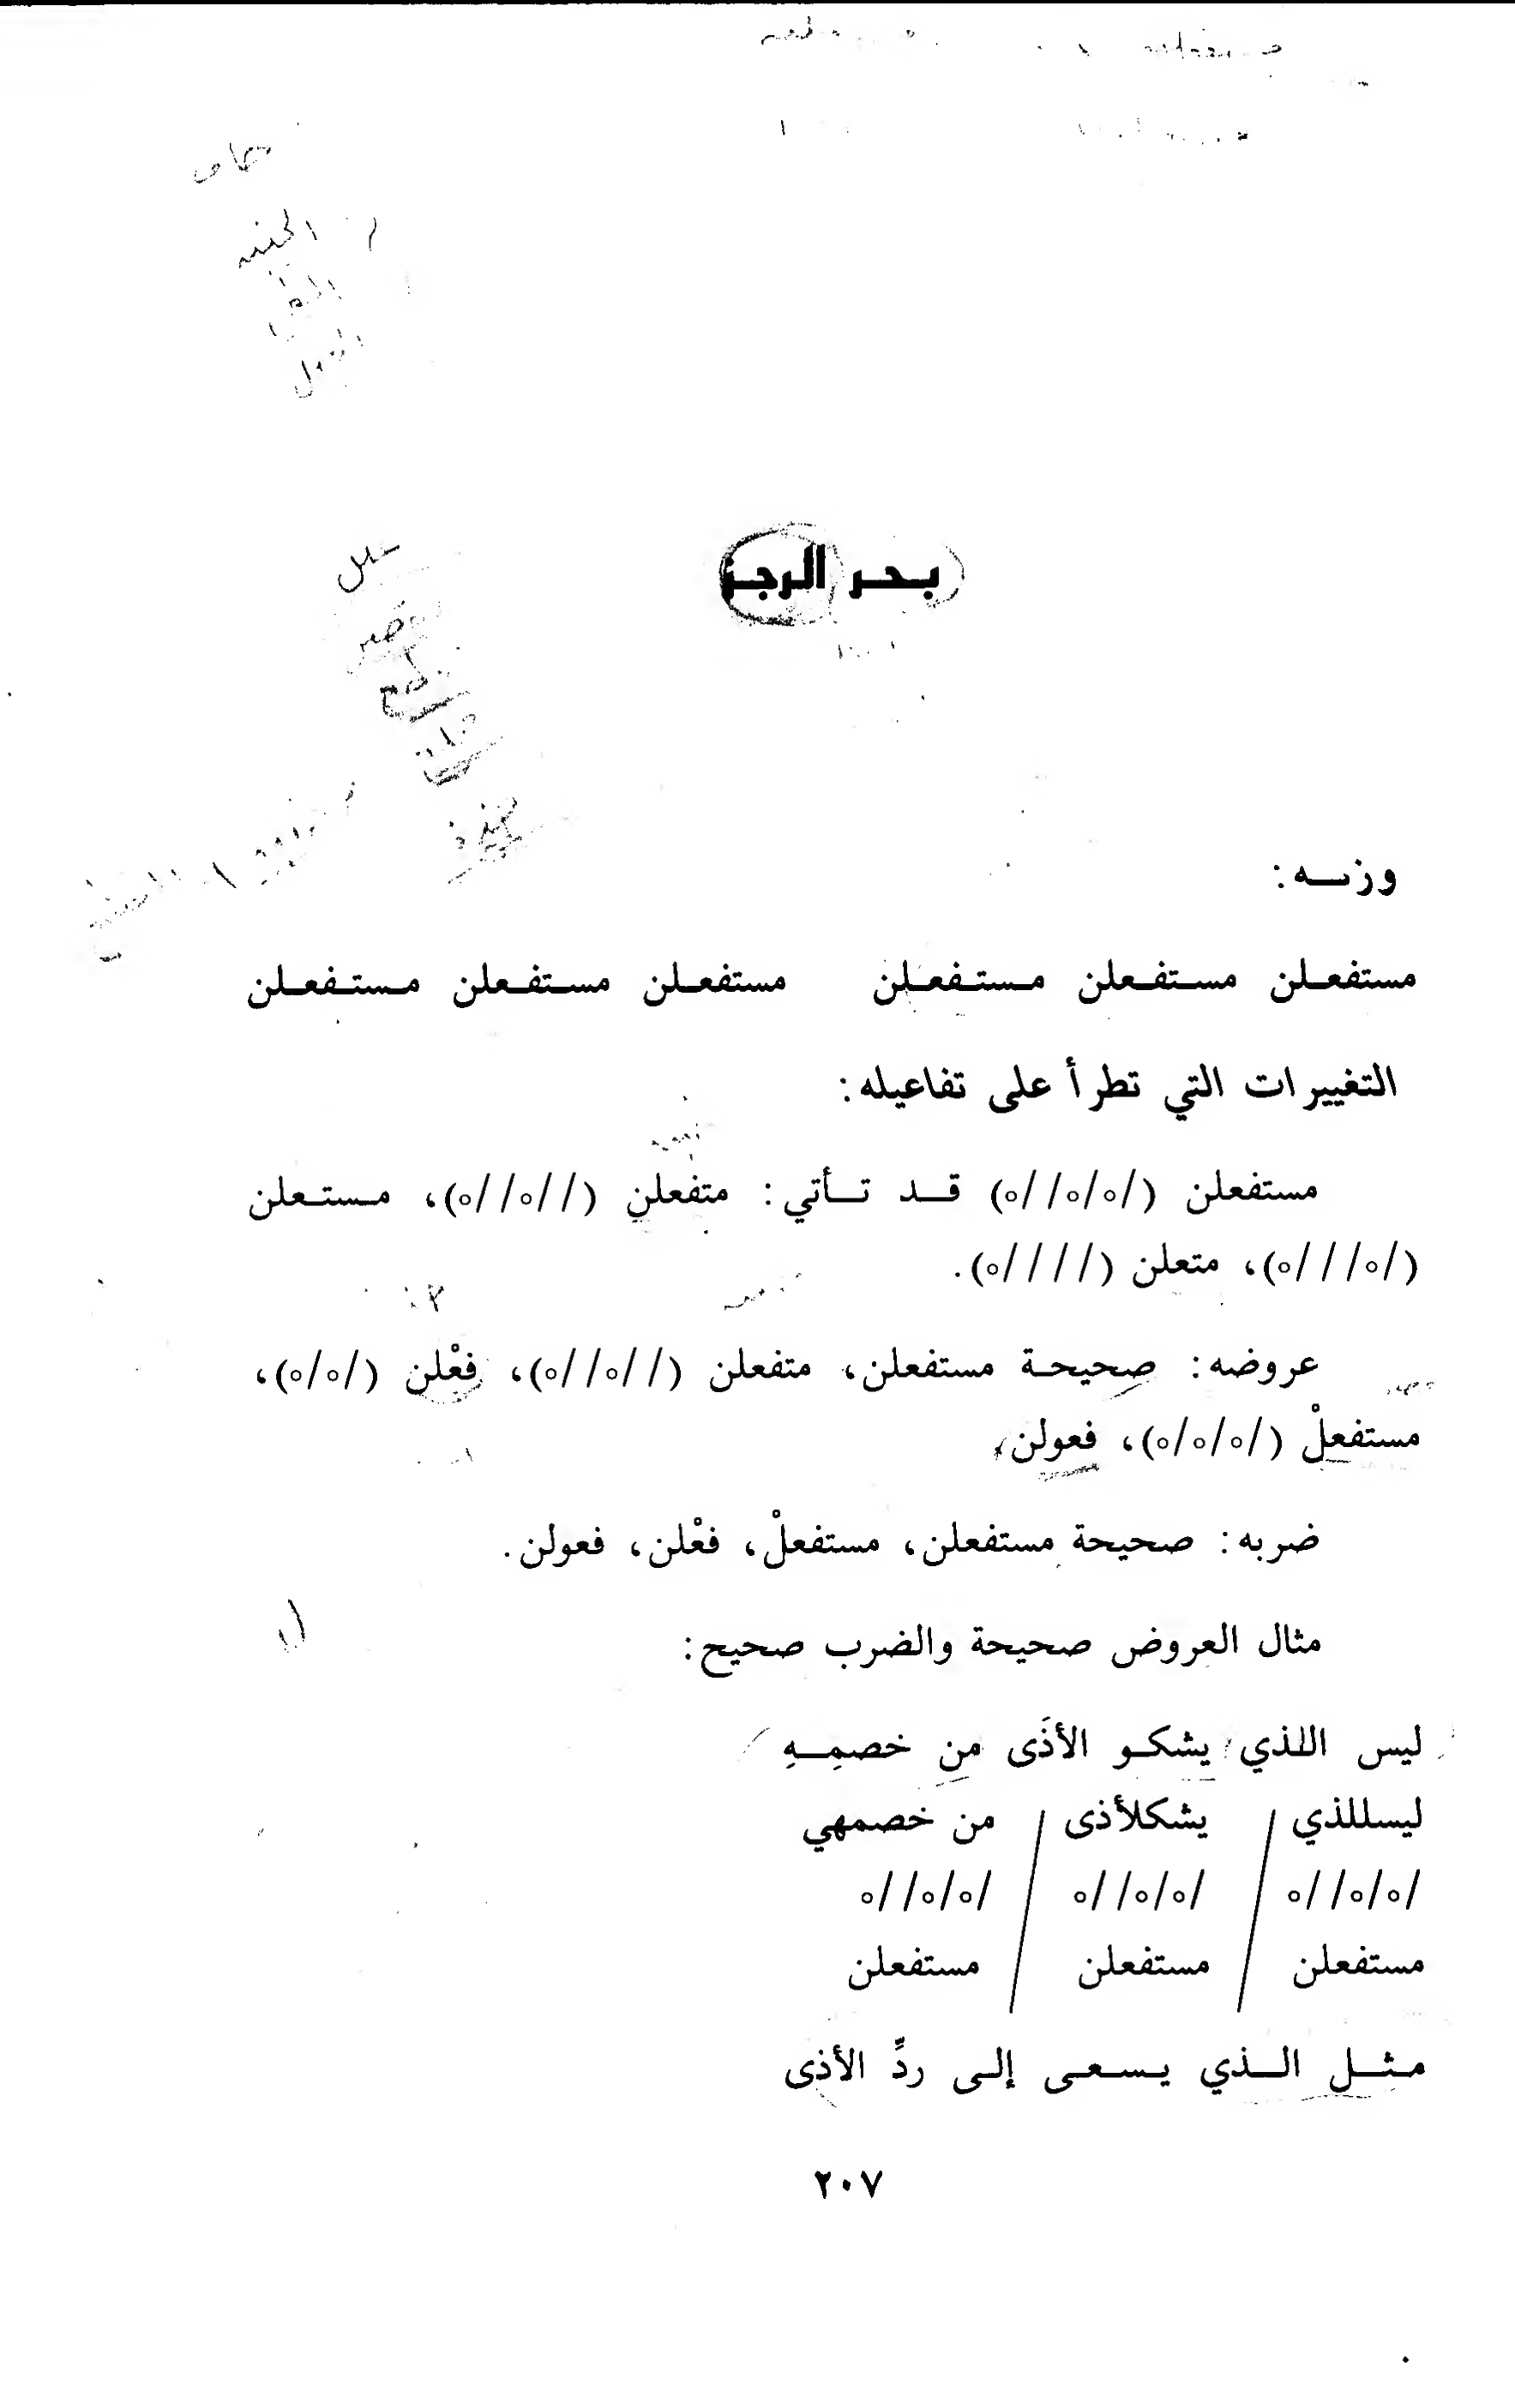 بحر الرجز
وزنه:
مستفعلن مستفعلن مستفعلن مستفعلن مستفعلن مستفعلن
التغييرات التي تطرأ على تفاعيله:
مستفعلن (/ه/ه//ه) قد تأتي: متفعلن (//ه//ه)، مستعلن
(/ه///ه)، متعلن (////ه).
عروضه: صحيحة مستفعلن، متفعلن (//ه//ه)، فعْلن (/ه/ه)،
مستفعلْ (/ه/ه/ه)، فعولن،
ضربه: صحيحة مستفعلن، مستفعلْ، فعْلن، فعولن.
مثال العروض صحيحة والضرب صحيح:
ليس اللذي يشكو الأذَى من خصمِهِ
ليسللذي / يشكلأذى / من خصمهي
/ه/ه//ه / /ه/ه//ه / /ه/ه//ه
مستفعلن / مستفعلن / مستفعلن
مثل الذي يسعى إلى ردِّ الأذى
٢٠٧